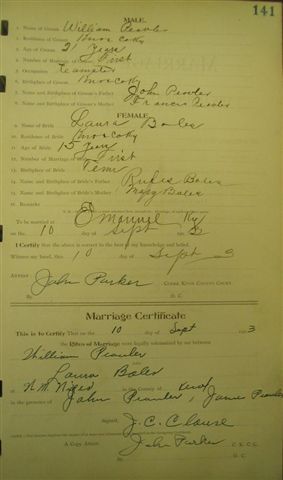 141
MALE.
1. Name of Groom William Peavler
2. Residence of Groom Knox Co Ky
3. Age of Groom 21 Years
4. Number of Marriage of Groom First
5. Occupation Teamster
6. Birthplace of Groom Knox Co Ky
7. Name and Birthplace of Groom's Father John Peavler
8. Name and Birthplace of Groom's Mother Francis Peavler
FEMALE.
9. Name of Bride Laura Boles
10. Residence of Bride Knox Co Ky
11. Age of Bride 15 Years
12. Number of Marriage of Bride First
13. Birthplace of Bride Tenn
14. Name and Birthplace of Bride's Father Rufus Boles
15. Name and Birthplace of Bride's Mother Boles
16. Remarks
To be married at Emanuel Ky
on the 10 day of Sept 3
I Certify that the above is correct to the best of my knowledge and belief.
Witness my hand, this 10 day of Sept 3
Attest
John Parker Clerk Knox County Court.
By D. C.
Marriage Certificate
This is to Certify That on the 10 day of Sept 3
the Rites of Marriage were legally solemnized by me between
William Peavler
Laura Boles
at in the County of Knox
in the presence of John Peavler, Peavler
Signed, J. C. Clouse
A Copy Attest: John Parker C.K.C.C.
By D. C.